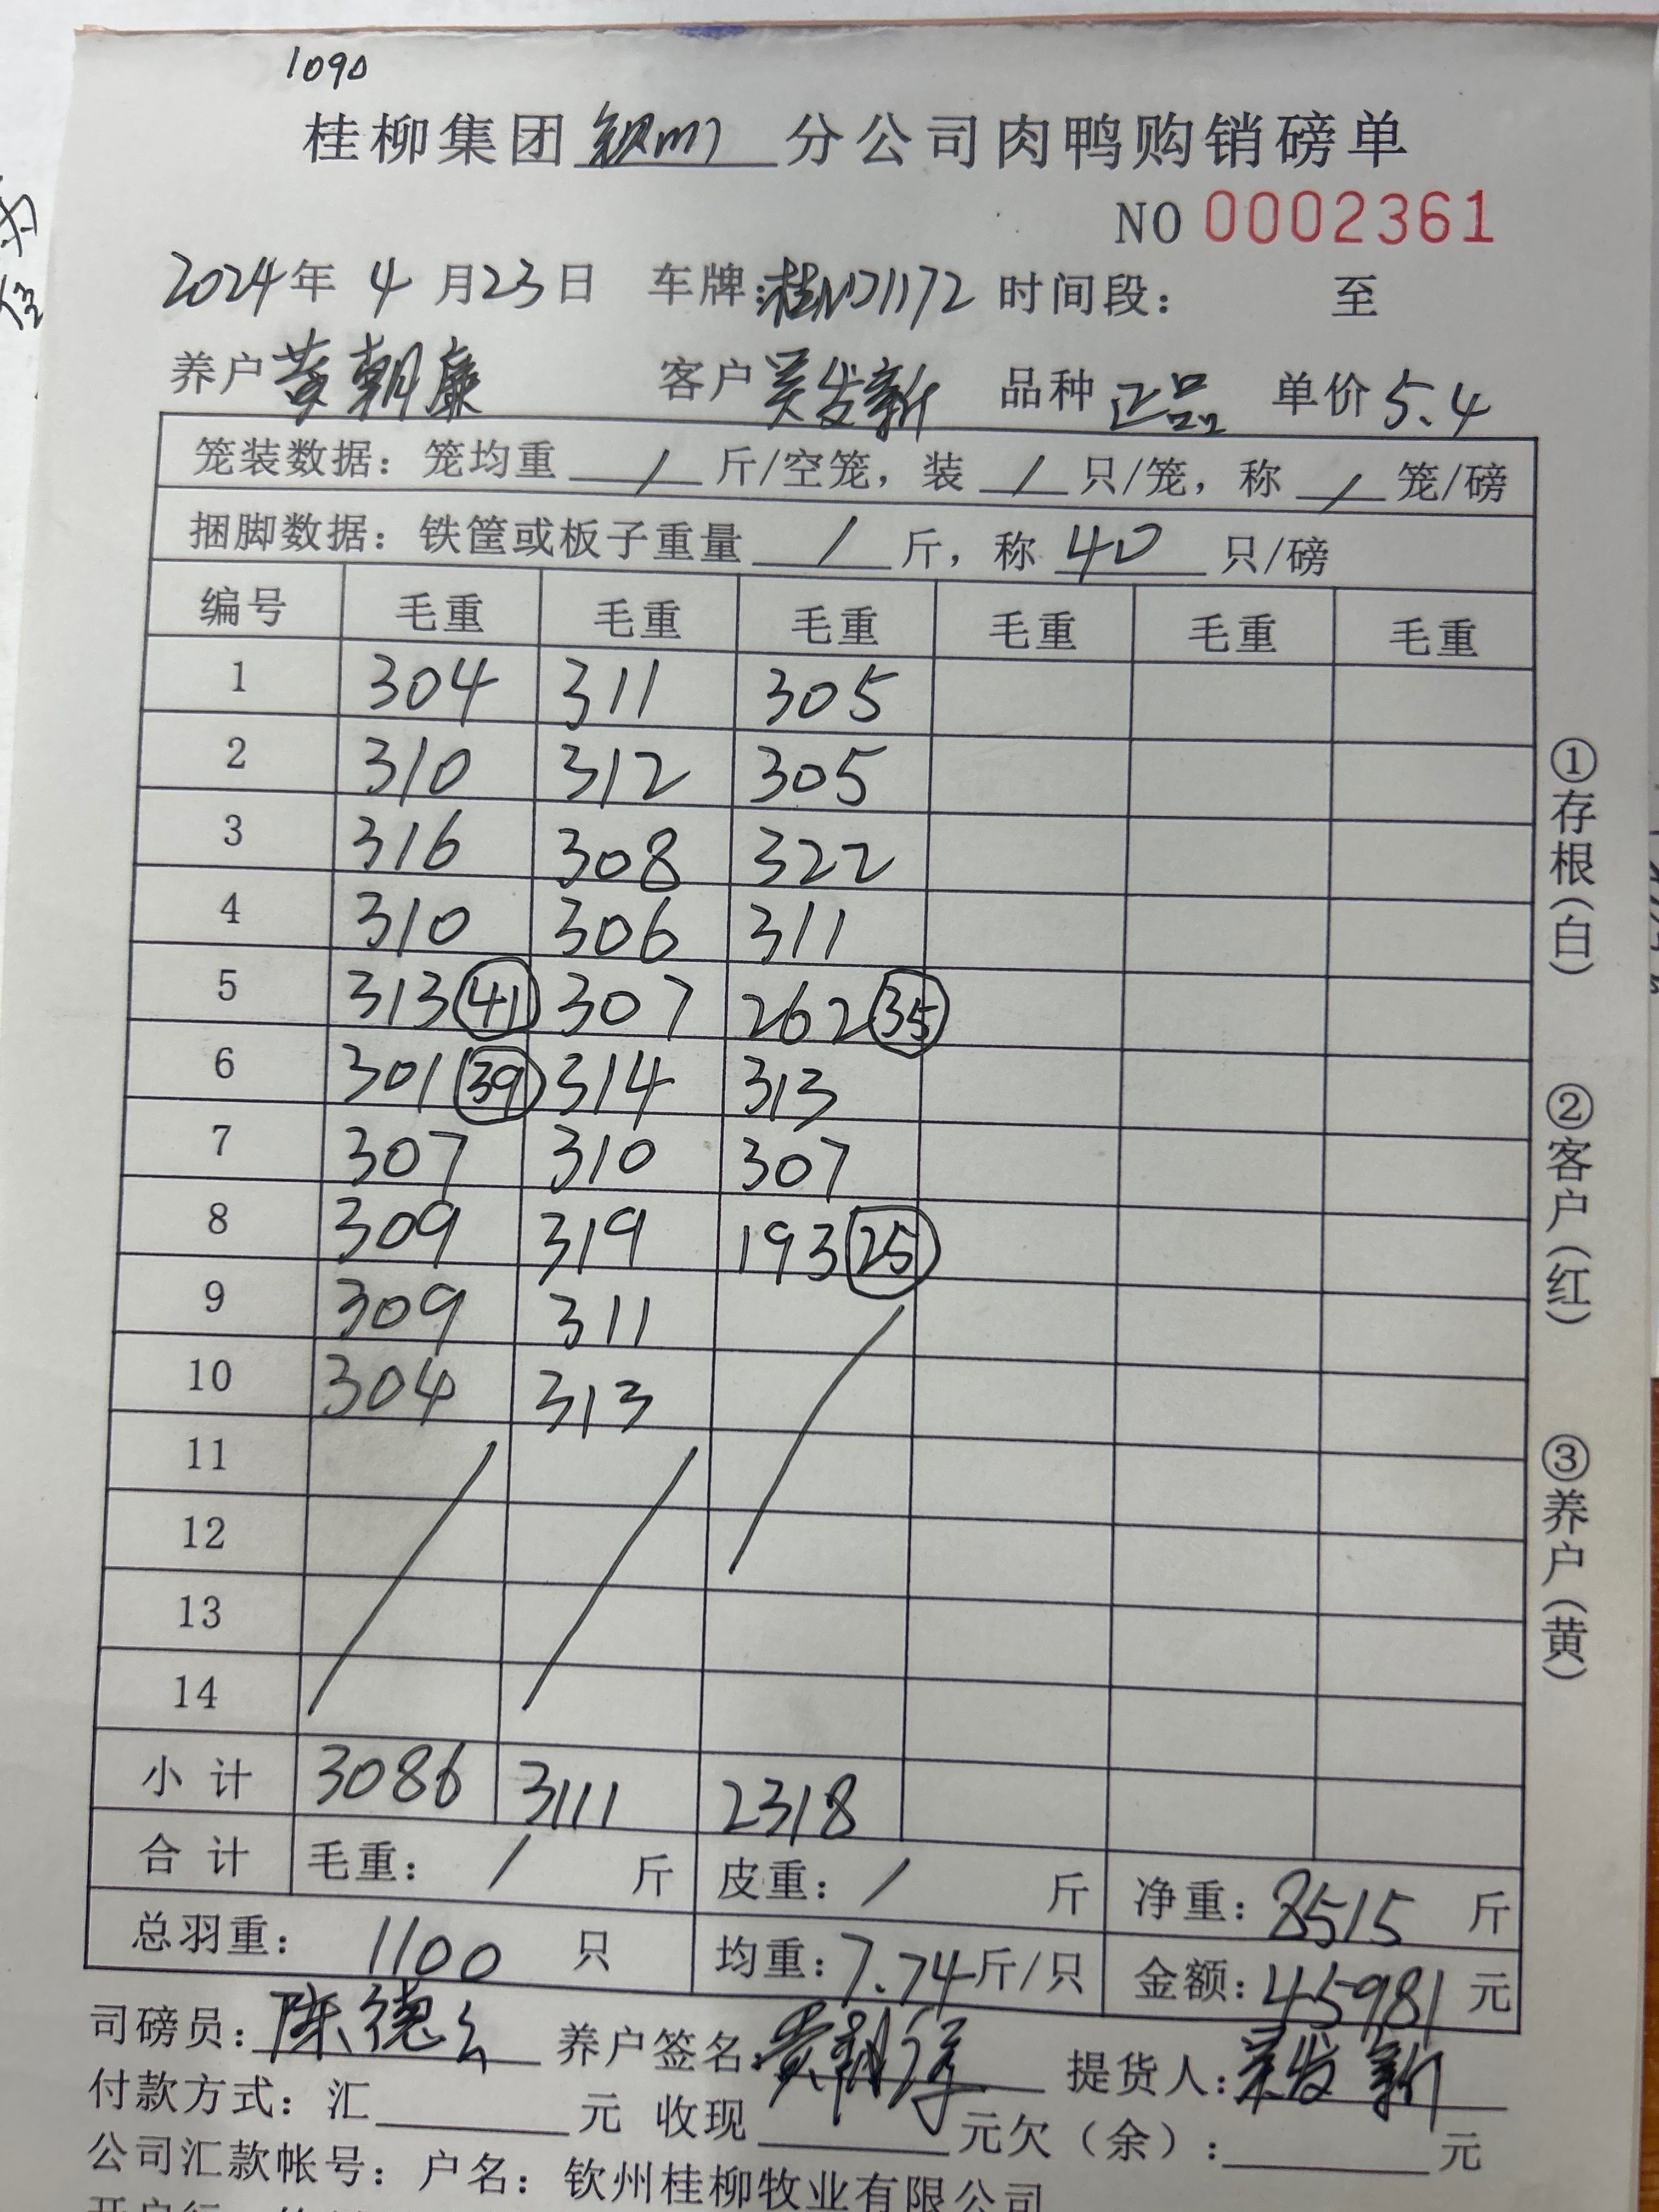 1090
桂柳集团 钦州 分公司肉鸭购销磅单
NO 0002361
2024年 4 月23日 车牌:桂N71172 时间段: 至
养户 黄朝廉 客户 吴发新 品种 正品 单价 5.4
笼装数据: 笼均重 / 斤/空笼, 装 / 只/笼, 称 / 笼/磅
捆脚数据: 铁筐或板子重量 / 斤, 称 40 只/磅
编号 毛重 毛重 毛重 毛重 毛重 毛重
1 304 311 305
2 310 312 305
3 316 308 322
4 310 306 311
5 313 (41) 307 262 (35)
6 301 (39) 314 313
7 307 310 307
8 309 319 193 (25)
9 309 311
10 304 313
11
12
13
14
小计 3086 3111 2318
合计 毛重: / 斤 皮重: / 斤 净重: 8515 斤
总羽重: 1100 只 均重: 7.74 斤/只 金额: 45981 元
司磅员: 陈德 养户签名: 黄朝 提货人: 吴发新
付款方式: 汇 元 收现 元欠(余): 元
公司汇款帐号: 户名: 钦州桂柳牧业有限公司
①存根(白)
②客户(红)
③养户(黄)